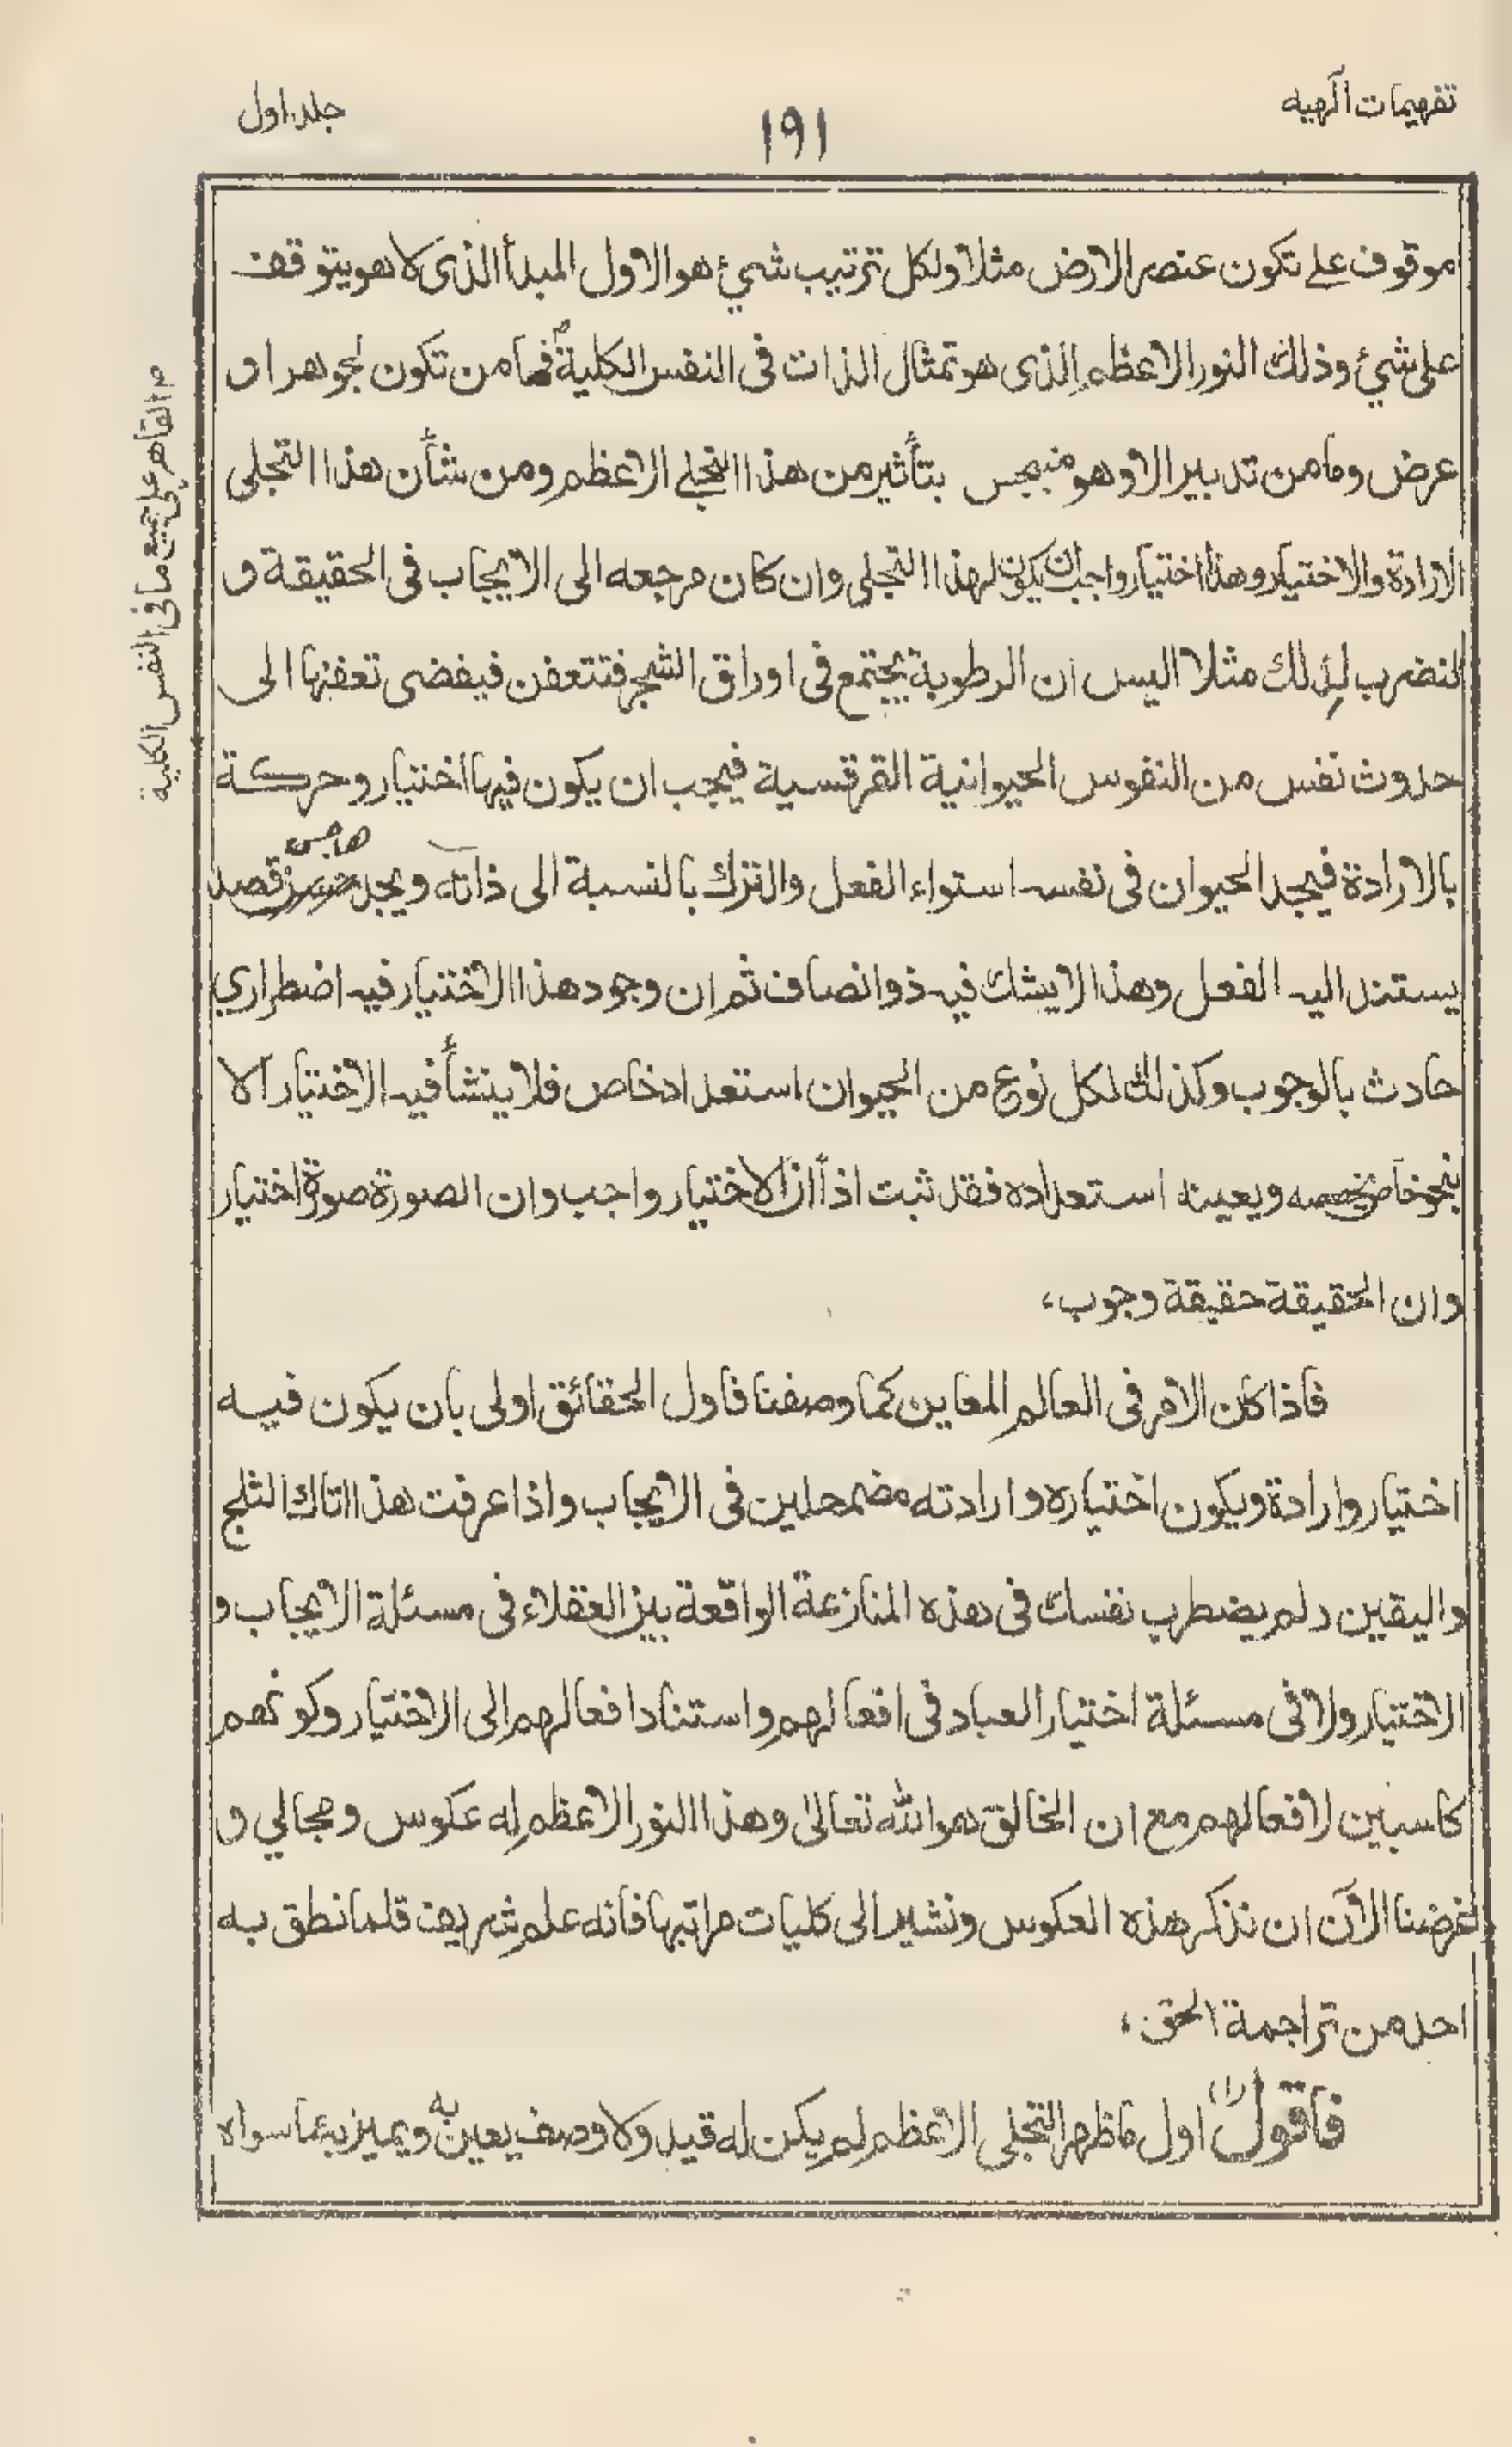 تفهيمات آلهيه
١٩١
جلد اول
موقوف على تكون عنصر الارض مثلا ولكل ترتيب شيئ هو الاول المبدأ الذى لا هو يتوقف
على شيئ وذلك النور الاعظم الذى هو تمثال الذات فى النفس الكلية فما من تكون لجوهر او
عرض وما من تدبير الا وهو منبجس بتأثير من هذا التجلى الاعظم ومن شأن هذا التجلى
الارادة والاختيار وهذا اختيار واجب ان يكون لهذا التجلى وان كان مرجعه الى الايجاب فى الحقيقة و
لنضرب لذلك مثلا اليس ان الرطوبة يجتمع فى اوراق الشجر فتتعفن فيفضى تعفنها الى
حدوث نفس من النفوس الحيوانية القرقسية فيجب ان يكون فيها اختيار وحركة
بالارادة فيجد الحيوان فى نفسه استواء الفعل والترك بالنسبة الى ذاته ويجد هاجس قصد
يستند اليه الفعل وهذا لا يشك فيه ذو انصاف ثم ان وجود هذا الاختيار فيه اضطراري
حادث بالوجوب وكذلك لكل نوع من الحيوان استعداد خاص فلا ينشأ فيه الاختيار الا
بنحو خاص يخصصه ويعينه استعداده فقد ثبت اذاً ان الاختيار واجب وان الصورة صورة اختيار
وان الحقيقة حقيقة وجوب،
فاذا كان الامر فى العالم المعاين كما وصفنا فاول الحقائق اولى بان يكون فيه
اختيار وارادة ويكون اختياره وارادته مضمحلين فى الايجاب واذا عرفت هذا اتاك الثلج
واليقين ولم يضطرب نفسك فى هذه المنازعة الواقعة بين العقلاء فى مسئلة الايجاب و
الاختيار ولا فى مسئلة اختيار العباد فى افعالهم واستناد افعالهم الى الاختيار وكونهم
كاسبين لافعالهم مع ان الخالق هو الله تعالى وهذا النور الاعظم له عكوس ومجالي و
غرضنا الآن ان نذكر هذه العكوس ونشير الى كليات مراتبها فانه علم شريف قلما نطق به
احد من تراجمة الحق،
فاقول (١) اول ما ظهر التجلى الاعظم لم يكن له قيد ولا وصف يعين به ويميز به عما سواه
م القاهر على جميع ما فى النفس الكلية